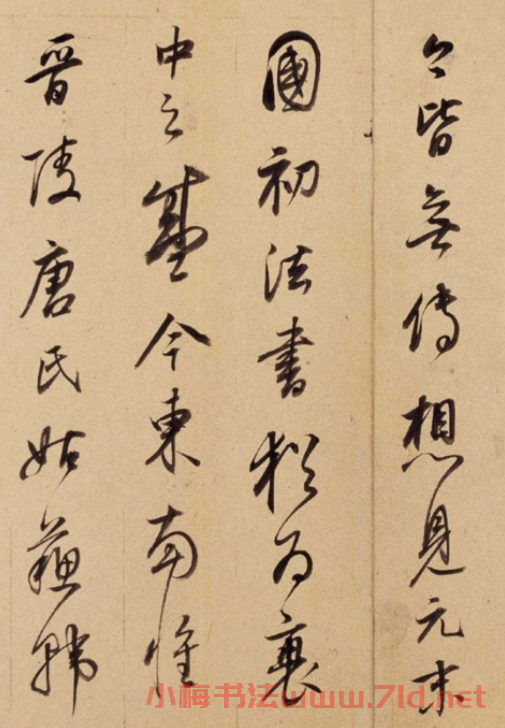 皆無傳想見元末
國初法書猶為衰
中之盛今東南惟
晉陵唐氏姑蘇韓
小梅书法www.7ld.net